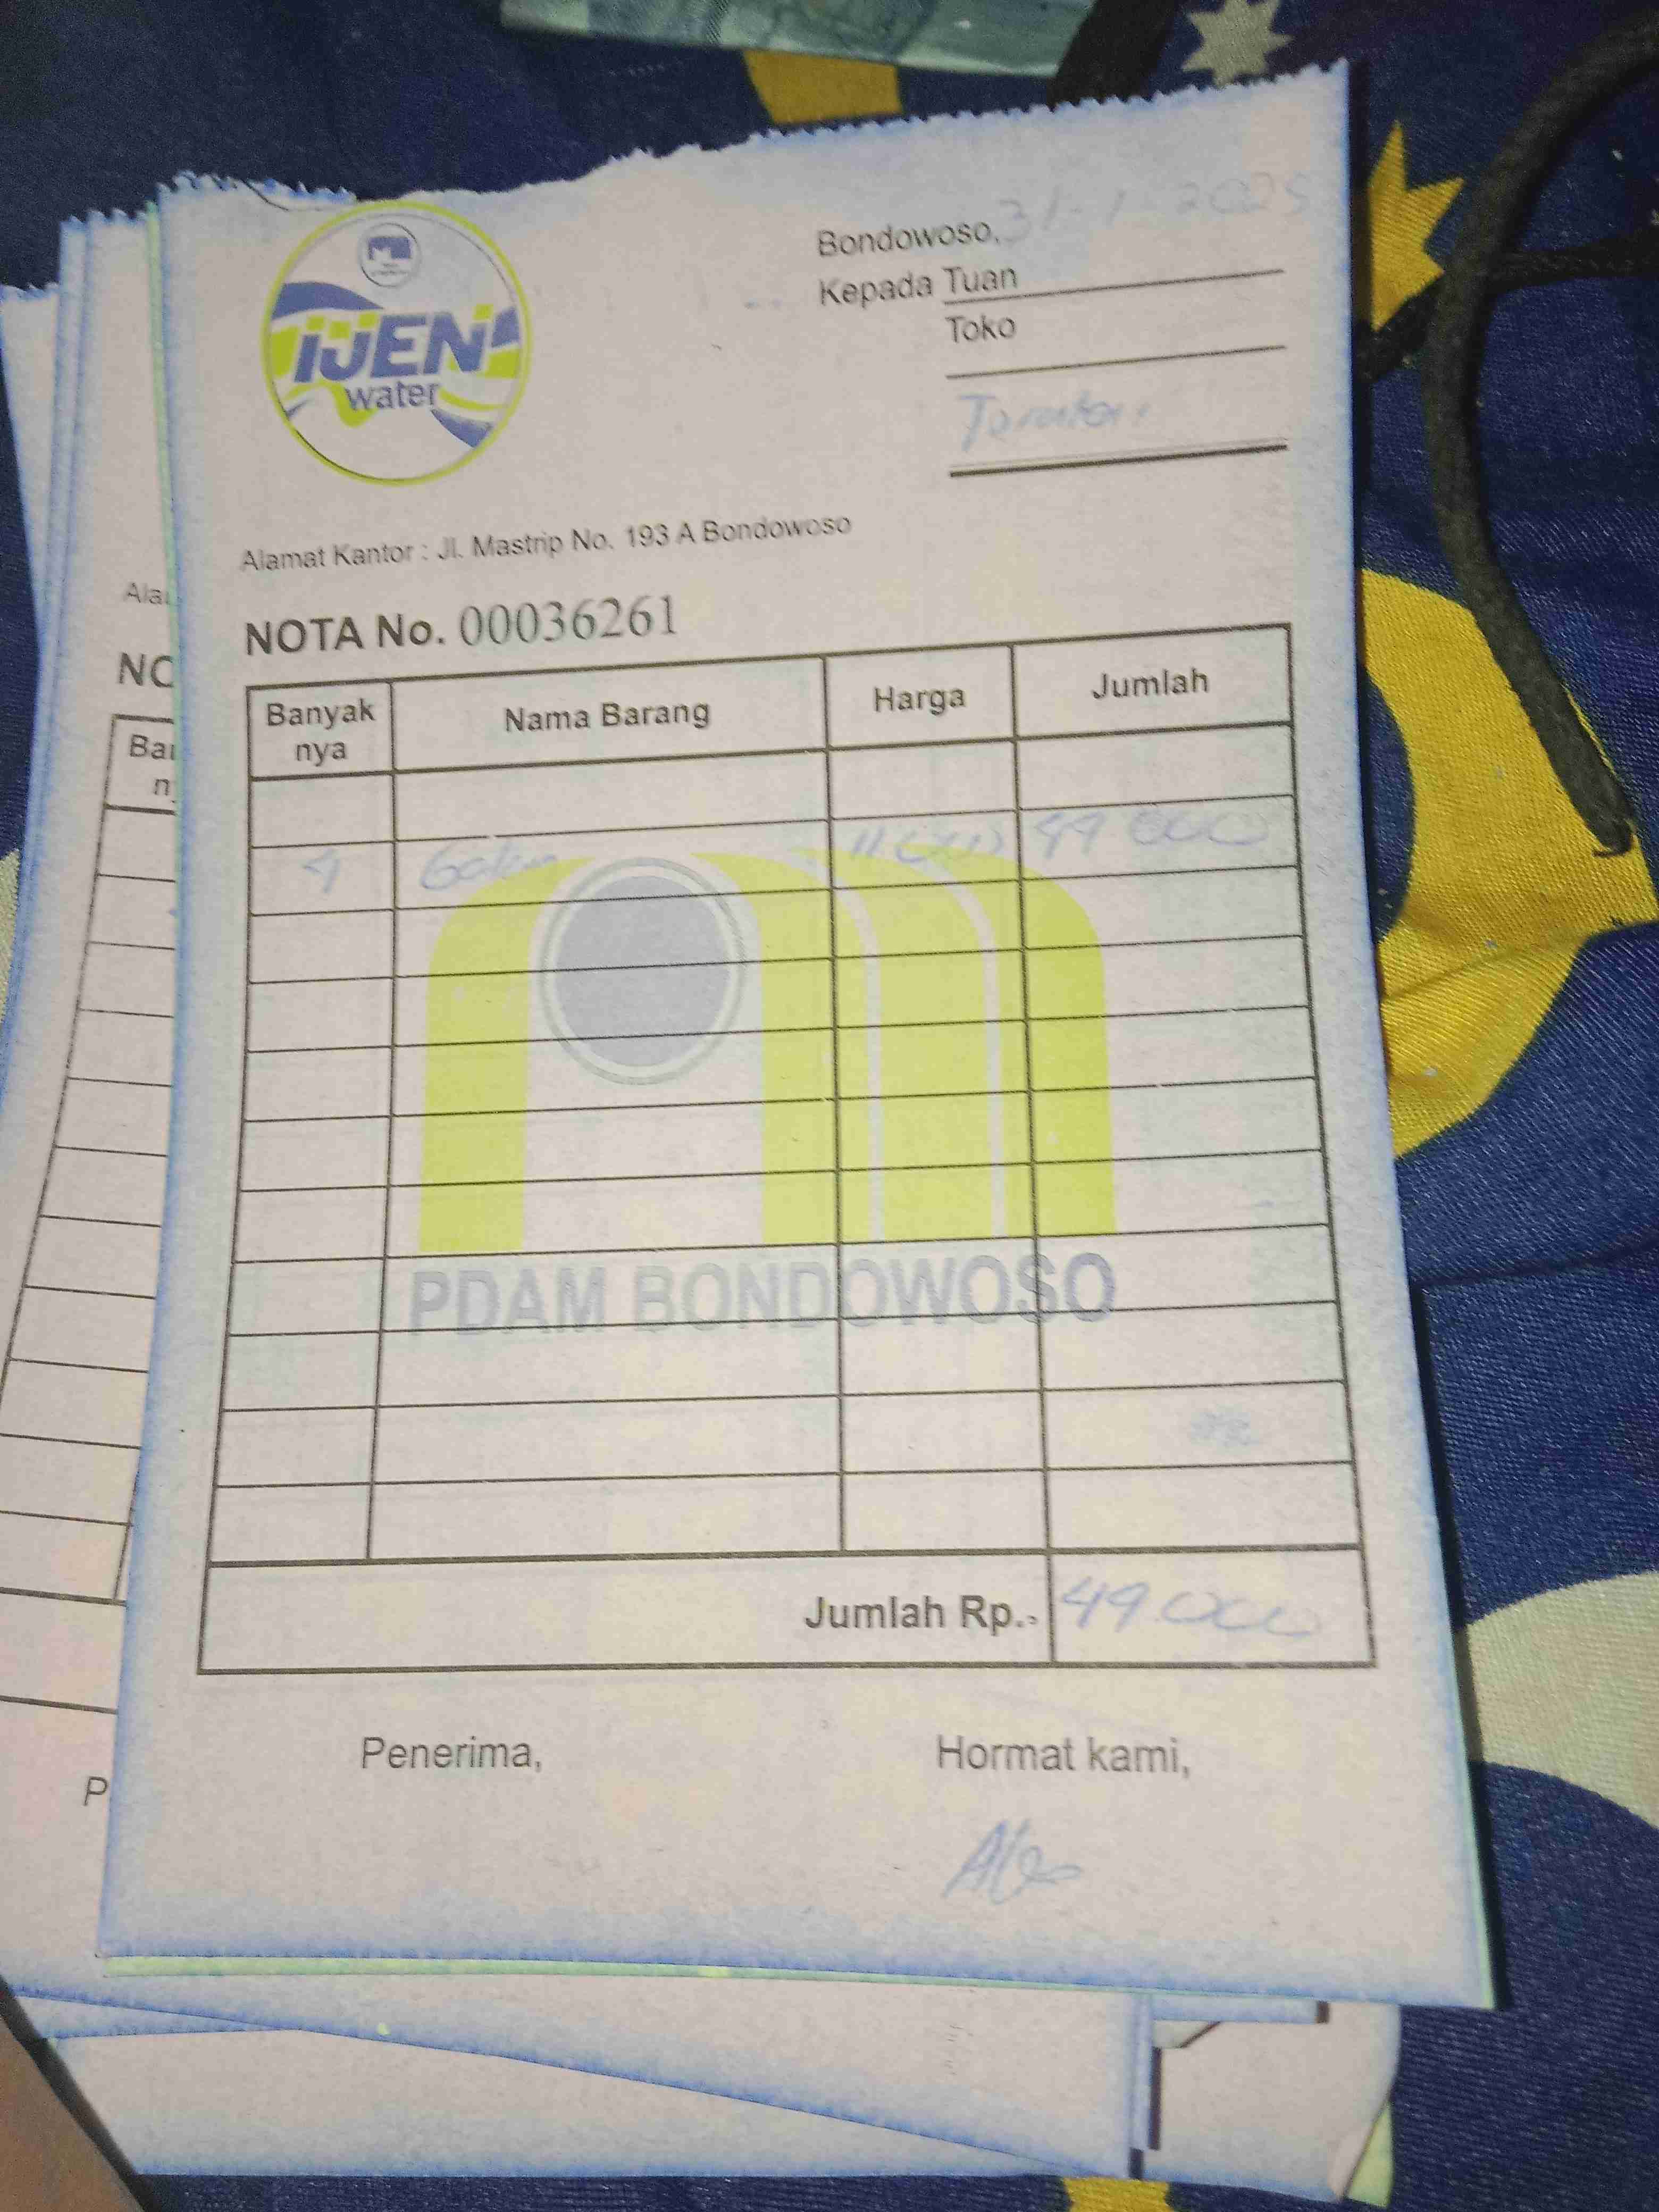 IJEN
water
Bondowoso, 31-1-2025
Kepada Tuan
Toko
Alamat Kantor : Jl. Mastrip No. 193 A Bondowoso
NOTA No. 00036261
Banyak nya Nama Barang Harga Jumlah
4 Galon 11.000 49 000
PDAM BONDOWOSO
Jumlah Rp.- 49.000
Penerima, Hormat kami,
Ala
NO
Ba
n
P